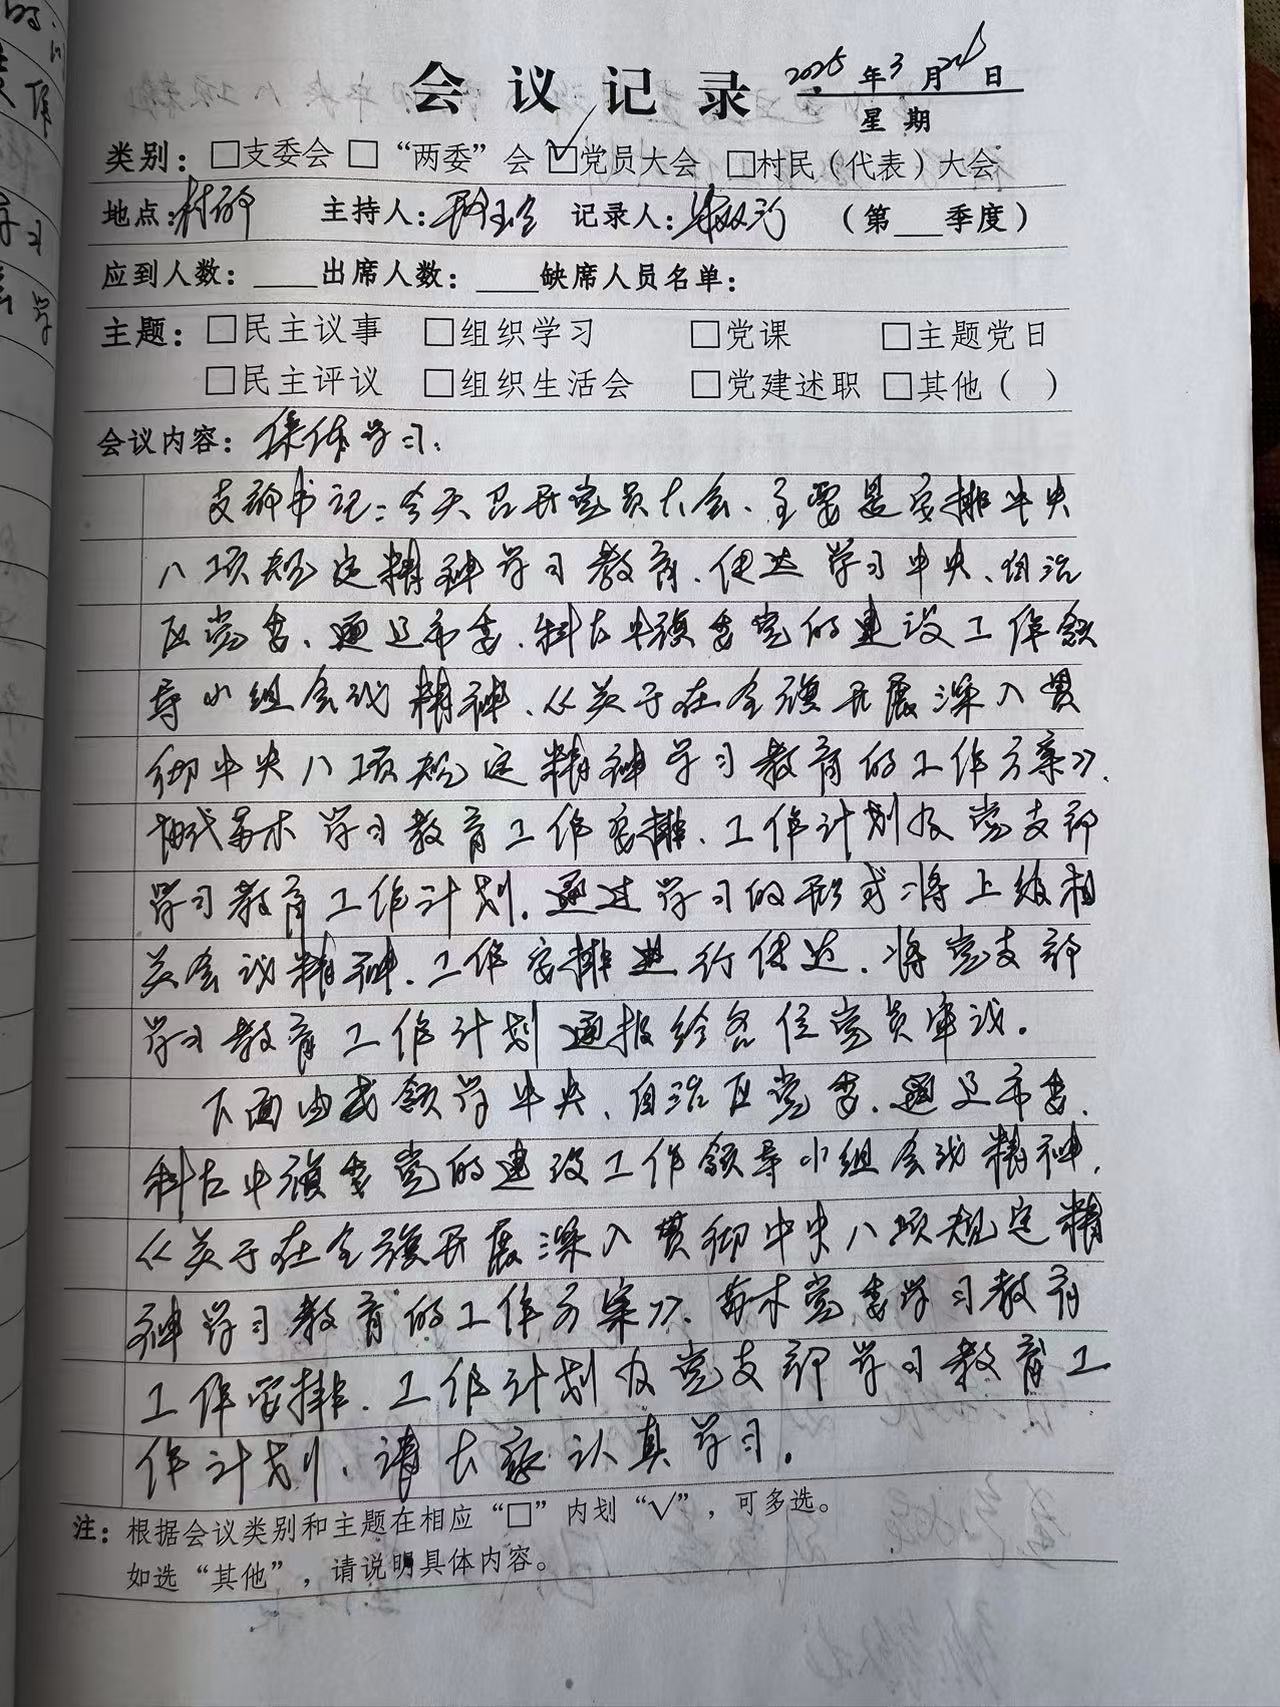 会议记录 2025年3月26日
星期
类别：□支委会 □“两委”会 ☑党员大会 □村民（代表）大会
地点：村部 主持人： 记录人： （第___季度）
应到人数：____出席人数：____缺席人员名单：
主题：□民主议事 □组织学习 □党课 □主题党日
□民主评议 □组织生活会 □党建述职 □其他（ ）
会议内容：集体学习：
支部书记：今天召开党员大会、主要是安排中央
八项规定精神学习教育、传达学习中央、自治
区党委、通辽市委、科左中旗委党的建设工作领
导小组会议精神、《关于在全旗开展深入贯
彻中央八项规定精神学习教育的工作方案》、
苏木学习教育工作安排、工作计划及党支部
学习教育工作计划。通过学习的形式将上级相
关会议精神、工作安排进行传达、将党支部
学习教育工作计划通报给各位党员审议。
下面由我领学中央、自治区党委、通辽市委、
科左中旗委党的建设工作领导小组会议精神、
《关于在全旗开展深入贯彻中央八项规定精
神学习教育的工作方案》、苏木党委学习教育
工作安排、工作计划及党支部学习教育工
作计划、请大家认真学习。
注：根据会议类别和主题在相应“□”内划“√”，可多选。
如选“其他”，请说明具体内容。